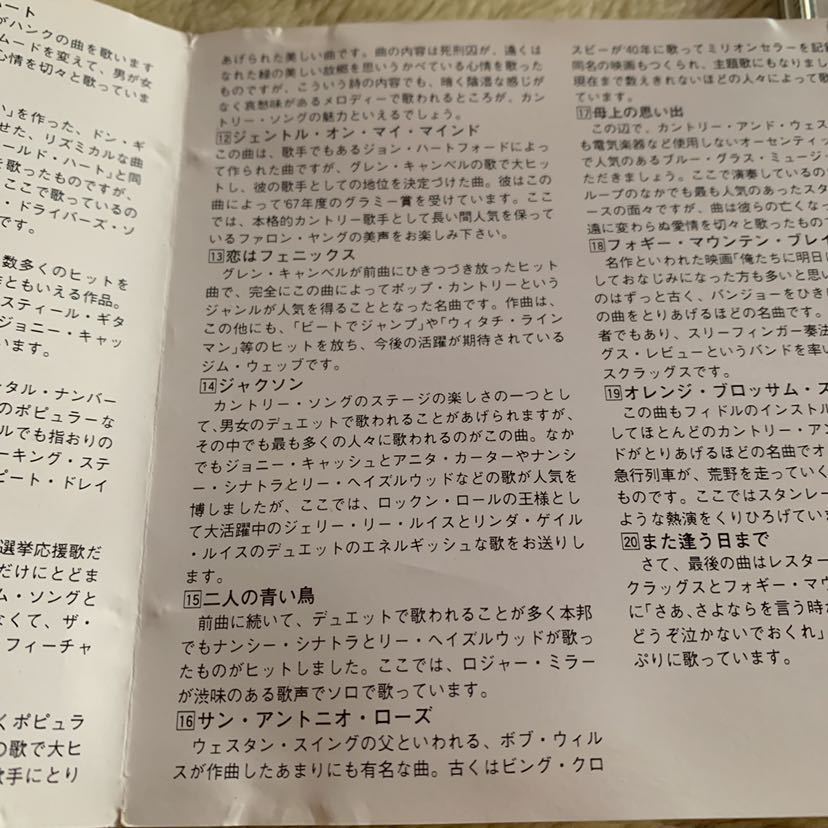 ート
がハンクの曲を歌います
ムードを変えて、男が女
心情を切々と歌っていま
い」を作った、ドン・ギ
せた、リズミカルな曲
ールド・ハート」と同
を歌ったものですが、
ここで歌っているの
・ドライバーズ・ソ
です。
数多くのヒットを
ともいえる作品。
スティール・ギタ
ジョニー・キャッ
います。
ンタル・ナンバー
のポピュラーな
ルでも指おりの
ーキング・ステ
ピート・ドレイ
選挙応援歌だ
だけにとどま
ム・ソングと
なくて、ザ・
フィーチャ
くポピュラ
の歌で大ヒ
歌手にとり
あげられた美しい曲です。曲の内容は死刑囚が、遠くは
なれた緑の美しい故郷を思いうかべている心情を歌った
ものですが、こういう詩の内容でも、暗く陰湿な感じが
なく哀愁味があるメロディーで歌われるところが、カン
トリー・ソングの魅力といえるでしょう。
12 ジェントル・オン・マイ・マインド
この曲は、歌手でもあるジョン・ハートフォードによっ
て作られた曲ですが、グレン・キャンベルの歌で大ヒッ
トし、彼の歌手としての地位を決定づけた曲。彼はこの
曲によって'67年度のグラミー賞を受けています。ここ
では、本格的カントリー歌手として長い間人気を保って
いるファロン・ヤングの美声をお楽しみ下さい。
13 恋はフェニックス
グレン・キャンベルが前曲にひきつづき放ったヒット
曲で、完全にこの曲によってポップ・カントリーという
ジャンルが人気を得ることとなった名曲です。作曲は、
この他にも、「ビートでジャンプ」や「ウィタチ・ライン
マン」等のヒットを放ち、今後の活躍が期待されている
ジム・ウェッブです。
14 ジャクソン
カントリー・ソングのステージの楽しさの一つとし
て、男女のデュエットで歌われることがあげられますが、
その中でも最も多くの人々に歌われるのがこの曲。なか
でもジョニー・キャッシュとアニタ・カーターやナンシ
ー・シナトラとリー・ヘイズルウッドなどの歌が人気を
博しましたが、ここでは、ロックン・ロールの王様とし
て大活躍中のジェリー・リー・ルイスとリンダ・ゲイル
・ルイスのデュエットのエネルギッシュな歌をお送りし
ます。
15 二人の青い鳥
前曲に続いて、デュエットで歌われることが多く本邦
でもナンシー・シナトラとリー・ヘイズルウッドが歌っ
たものがヒットしました。ここでは、ロジャー・ミラー
が渋味のある歌声でソロで歌っています。
16 サン・アントニオ・ローズ
ウェスタン・スイングの父といわれる、ボブ・ウィル
スが作曲したあまりにも有名な曲。古くはビング・クロ
スビーが'40年に歌ってミリオンセラーを記録
同名の映画もつくられ、主題歌にもなりまし
現在まで数えきれないほどの人々によって歌
ています。
17 母上の思い出
この辺で、カントリー・アンド・ウェス
も電気楽器など使用しないオーセンティッ
で人気のあるブルー・グラス・ミュージ
ただきましょう。ここで演奏しているの
ループのなかでも最も人気のあったスタ
ースの面々ですが、曲は彼らの亡くなっ
遠に変わらぬ愛情を切々と歌ったもので
18 フォギー・マウンテン・ブレイ
名作といわれた映画「俺たちに明日に
しておなじみになった方も多いと思い
のはずっと古く、バンジョーをひき
の曲をとりあげるほどの名曲です。
者でもあり、スリーフィンガー奏法
グス・レビューというバンドを率い
スクラッグスです。
19 オレンジ・ブロッサム・ス
この曲もフィドルのインストル
してほとんどのカントリー・アン
ドがとりあげるほどの名曲でオ
急行列車が、荒野を走っていく
ものです。ここではスタンレー
ような熱演をくりひろげています
20 また逢う日まで
さて、最後の曲はレスター
クラッグスとフォギー・マウ
に「さあ、さよならを言う時が
どうぞ泣かないでおくれ」
ぷりに歌っています。